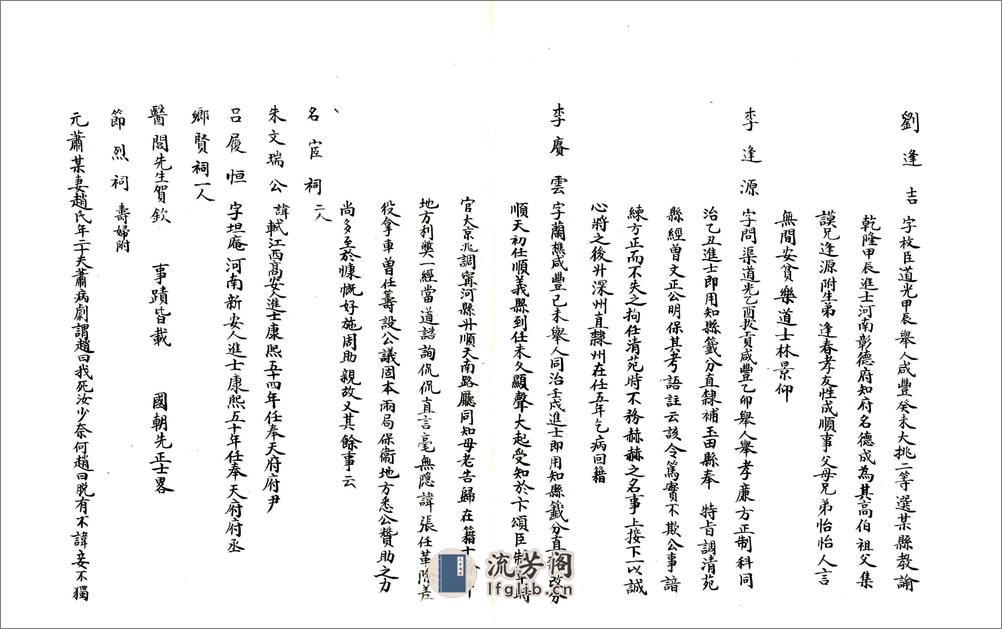 劉逢吉 字枚臣道光甲辰舉人咸豐癸未大挑二等選某縣教諭
乾隆甲辰進士河南彰德府知府名德成為其高伯祖父集
謨兄逢源附生弟逢春孝友性成順事父母兄弟怡怡人言
無間安貧樂道士林景仰
李逢源 字問渠道光乙酉拔貢咸豐乙卯舉人舉孝廉方正制科同
治乙丑進士即用知縣籤分直隸補玉田縣奉 特旨調清苑
縣經曾文正公明保其考語註云該令篤實不欺公事諳
練方正而不失之拘任清苑時不務赫赫之名事上接下一以誠
心將之後升深州直隸州在任五年乞病回籍
李賡雲 字蘭樵咸豐己未舉人同治壬戌進士即用知縣籤分直改分
順天初仕順義縣到任未久顯聲大起受知於卞頌臣制
官大京兆調甯河縣升順天南路廳同知母老告歸在籍十
地方利獘一經當道諮詢侃侃直言毫無隱諱張任革除差
役拿車曾任籌設公議固本兩局保衛地方悉公贊助之力
尚多至於慷慨好施周助親故又其餘事云
名宦祠 二人
朱文瑞公 諱軾江西高安人進士康熙五十四年任奉天府府尹
呂履恒 字坦庵河南新安人進士康熙五十年任奉天府府丞
鄉賢祠 一人
醫閭先生賀欽 事蹟皆載 國朝先正士畧
節烈祠 壽婦附
元蕭某妻趙氏年二十夫蕭病劇謂趙曰我死汝少奈何趙曰脫有不諱妾不獨
流芳阁
lfglib.com